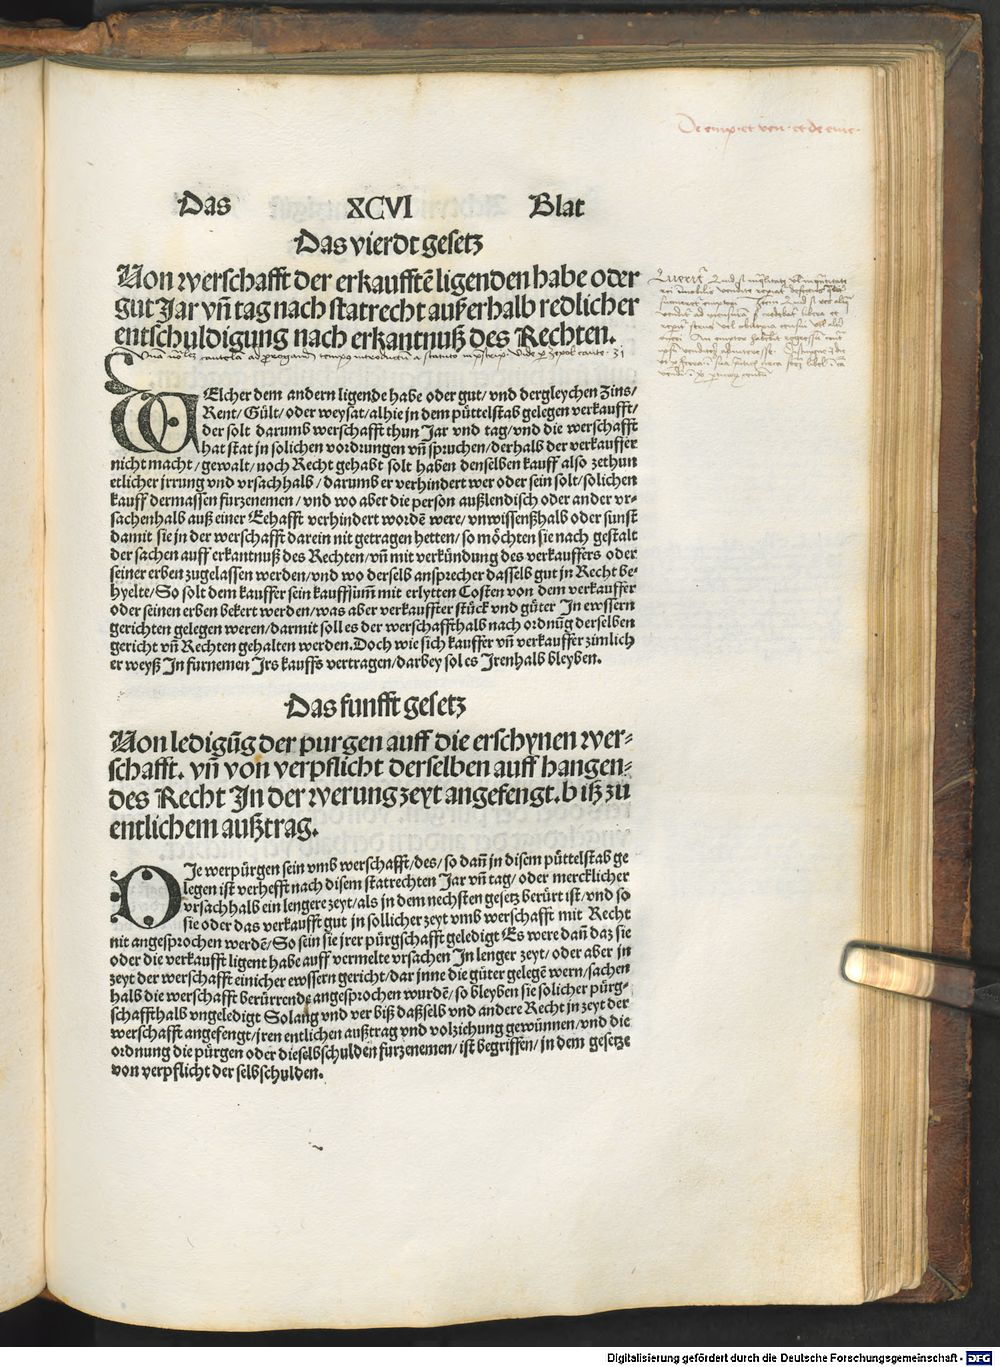 De emp. et ven. et de evic.
Das XCVI Blat
Das vierdt gesetz
Von werschafft der erkaufftē ligenden habe oder
gut Jar vn̄ tag nach statrecht außerhalb redlicher
entschuldigung nach erkantnuß des Rechten.
WElcher dem andern ligende habe oder gut/ vnd dergleychen Zins/
Rent/ Gült/ oder weysat/ alhie in dem püttelstab gelegen verkaufft/
der solt darumb werschafft thun Jar vnd tag/ vnd die werschafft
hat stat in solichen vordrungen vn̄ spruchen/ derhalb der verkauffer
nicht macht/ gewalt/ noch Recht gehabt solt haben denselben kauff also zethun
etlicher jrrung vnd vrsachhalb/ darumb er verhindert wer oder sein solt/ solichen
kauff dermassen furzenemen/ vnd wo aber die person außlendisch oder ander vr-
sachenhalb auß einer Eehafft verhindert wordē were/ vnwissenßhalb oder sunst
damit sie in der werschafft darein nit getragen hetten/ so möchten sie nach gestalt
der sachen auff erkantnuß des Rechten/ vn̄ mit verkündung des verkauffers oder
seiner erben zugelassen werden/ vnd wo derselb ansprecher dasselb gut jn Recht be-
hyelte/ So solt dem kauffer sein kauffsum̄ mit erlytten Costen von dem verkauffer
oder seinen erben bekert werden/ was aber verkauffter stück vnd güter Jn ewssern
gerichten gelegen weren/ darmit soll es der werschaffthalb nach ordnūg derselben
gericht vn̄ Rechten gehalten werden. Doch wie sich kauffer vn̄ verkauffer zimlich
er weyß Jn furnemen Jrs kauffs vertragen/ darbey sol es Jrenhalb bleyben.
Das funfft gesetz
Von ledigūg der purgen auff die erschynen wer-
schafft. vn̄ von verpflicht derselben auff hangen-
des Recht Jn der werung zeyt angefengt. biß zu
entlichem außtrag.
DJe werpürgen sein vmb werschafft/ des/ so dan̄ in disem püttelstab ge
legen ist verhefft nach disem statrechten Jar vn̄ tag/ oder mercklicher
vrsachhalb ein lengere zeyt/ als in dem nechsten gesetz berürt ist/ vnd so
sie oder das verkaufft gut in sollicher zeyt vmb werschafft mit Recht
nit angesprochen werdē/ So sein sie jrer pürgschafft geledigt Es were dan̄ daz sie
oder die verkaufft ligent habe auff vermelte vrsachen Jn lenger zeyt/ oder aber jn
zeyt der werschafft einicher ewssern gericht/ dar jnne die güter gelegē wern/ sachen
halb die werschafft berürrende angesprochen wurdē/ so bleyben sie solicher pürg-
schaffthalb vngeledigt Solang vnd ver biß daßselb vnd andere Recht jn zeyt der
werschafft angefengt/ jren entlichen außtrag vnd volziehung gewünnen/ vnd die
ordnung die pürgen oder die selbschulden furzenemen/ ist begriffen/ jn dem gesetze
von verpflicht der selbschulden.
Digitalisierung gefördert durch die Deutsche Forschungsgemeinschaft - DFG